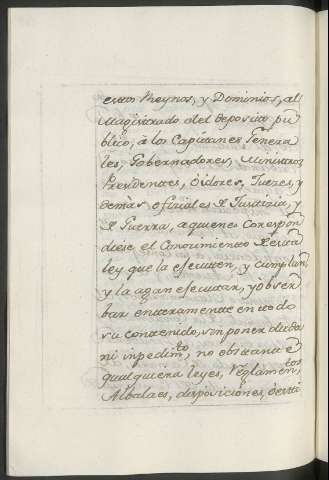 estos Reynos, y Dominios, al
Magistrado del deposito pu
blico, a los Capitanes Genera
les, Gobernadores, Ministros
Presidentes, Oidores, Juezes, y
demas oficiales de Justizia, y
de Guerra, a quienes correspon
diese el Conocimiento de esta
ley que la ejecuten, y cumplan
y la agan ejecutar, y obser
bar enteramente en todo
su contenido, sin poner duda
ni inpedimto, no obstante
qualquiera leyes, Reglamentos,
Albalaes, disposiciones, o esti